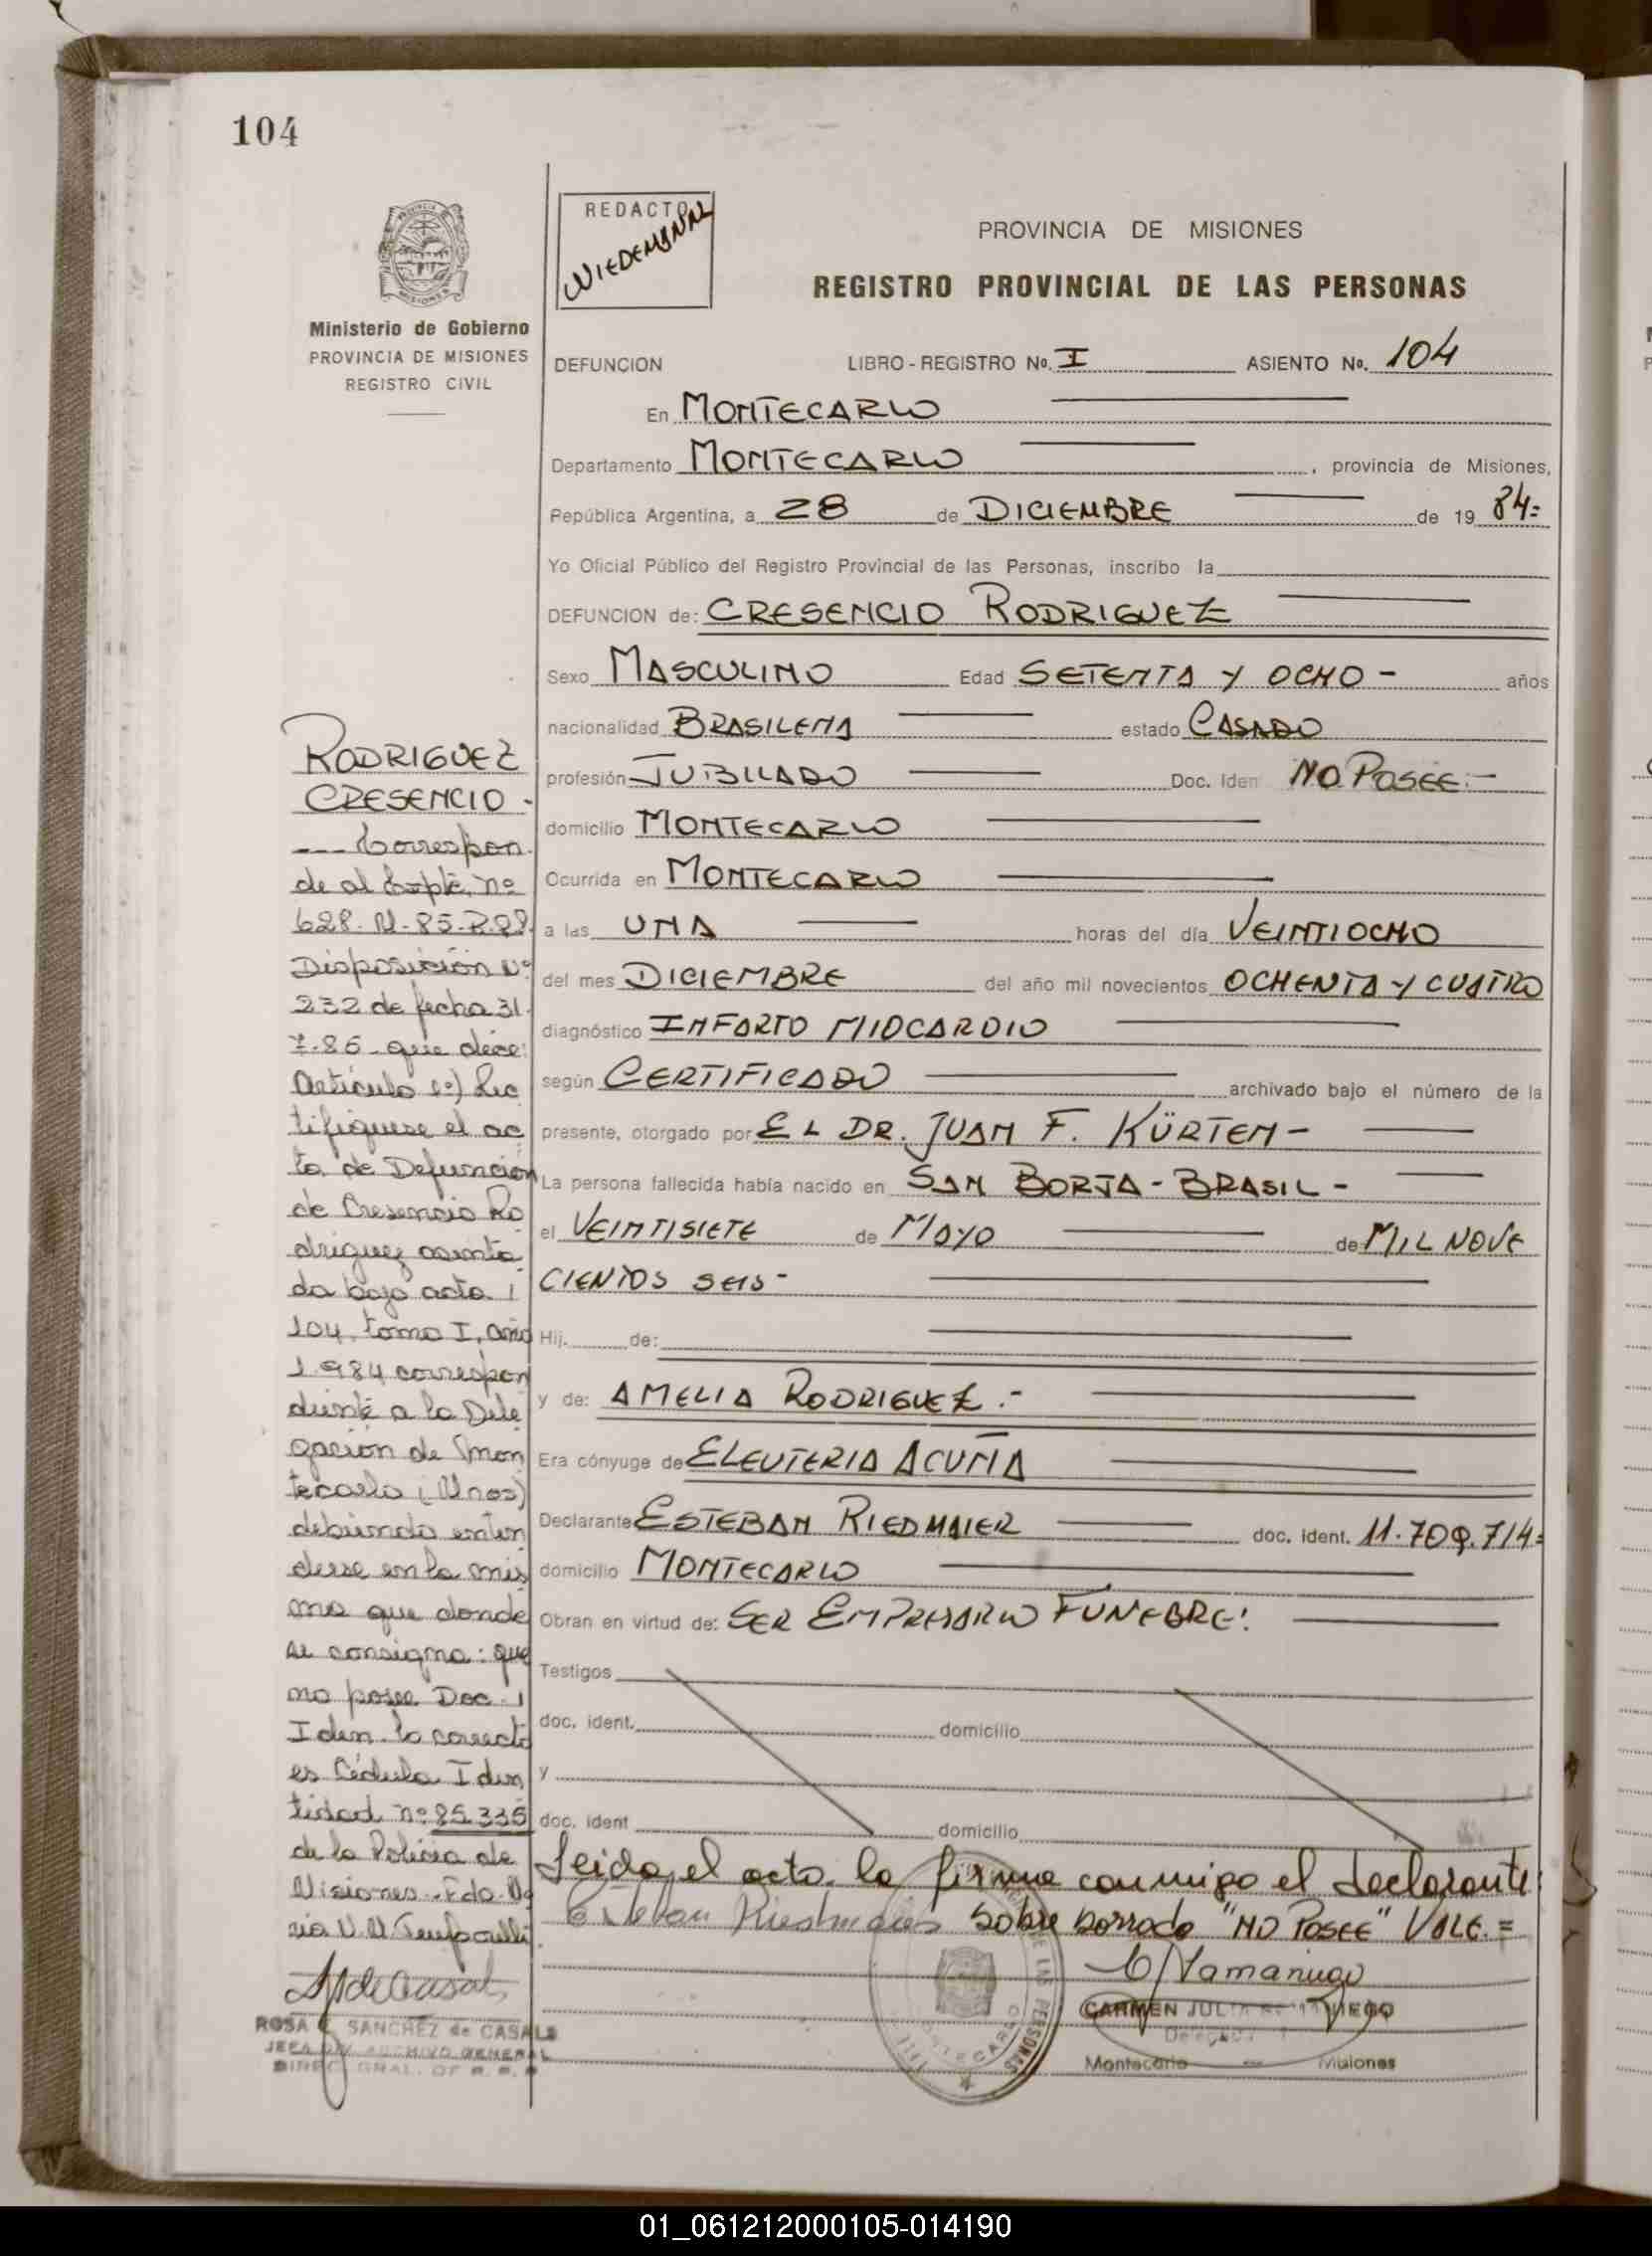 104
Ministerio de Gobierno
PROVINCIA DE MISIONES
REGISTRO CIVIL
RODRIGUEZ
CRESENCIO -
--- Correspon
de al Expte. nº
628. M-85-R.98.
Disposición Nº
232 de fecha 31.
7.85 - que dice:
Artículo 1º) Rec
tifiquese el ac
ta de Defunción
de Cresencio Ro
driguez asenta
da bajo acta
104, tomo I, año
1.984 correspon
diente a la Dele
gación de Mon
tecarlo (Mnes)
debiendo enten
derse en la mis
ma que donde
se consigna: que
no posee Doc.
Iden. lo correcto
es Cédula Iden
tidad nº 85.335
de la Policía de
Misiones. Fdo.
ROSA SANCHEZ de CASALS
JEFA ARCHIVO GENERAL
REDACTO
WIEDEMANN
PROVINCIA DE MISIONES
REGISTRO PROVINCIAL DE LAS PERSONAS
DEFUNCION LIBRO - REGISTRO No. I ASIENTO No. 104
En MONTECARLO
Departamento MONTECARLO, provincia de Misiones,
República Argentina, a 28 de DICIEMBRE de 19 84=
Yo Oficial Público del Registro Provincial de las Personas, inscribo la
DEFUNCION de: CRESENCIO RODRIGUEZ
Sexo MASCULINO Edad SETENTA Y OCHO - años
nacionalidad BRASILEÑA estado CASADO
profesión JUBILADO Doc. Iden NO POSEE.-
domicilio MONTECARLO
Ocurrida en MONTECARLO
a las UNA horas del día VEINTIOCHO
del mes DICIEMBRE del año mil novecientos OCHENTA Y CUATRO
diagnóstico INFARTO MIOCARDIO
según CERTIFICADO archivado bajo el número de la
presente, otorgado por EL DR. JUAN F. KÜRTEN -
La persona fallecida había nacido en SAN BORJA - BRASIL -
el VEINTISIETE de MAYO de MIL NOVE
CIENTOS SEIS -
Hij. de:
y de: AMELIA RODRIGUEZ.-
Era cónyuge de ELEUTERIA ACUÑA
Declarante ESTEBAN RIEDMAIER doc. ident. 11.709.714=
domicilio MONTECARLO
Obran en virtud de: SER EMPRESARIO FUNEBRE.
Testigos
doc. ident. domicilio
y
doc. ident domicilio
Leida el acta la firma conmigo el declarante
Esteban Riedmaier sobre borrado "NO POSEE" VALE.=
CARMEN JULIA
Montecarlo — Misiones
01_061212000105-014190